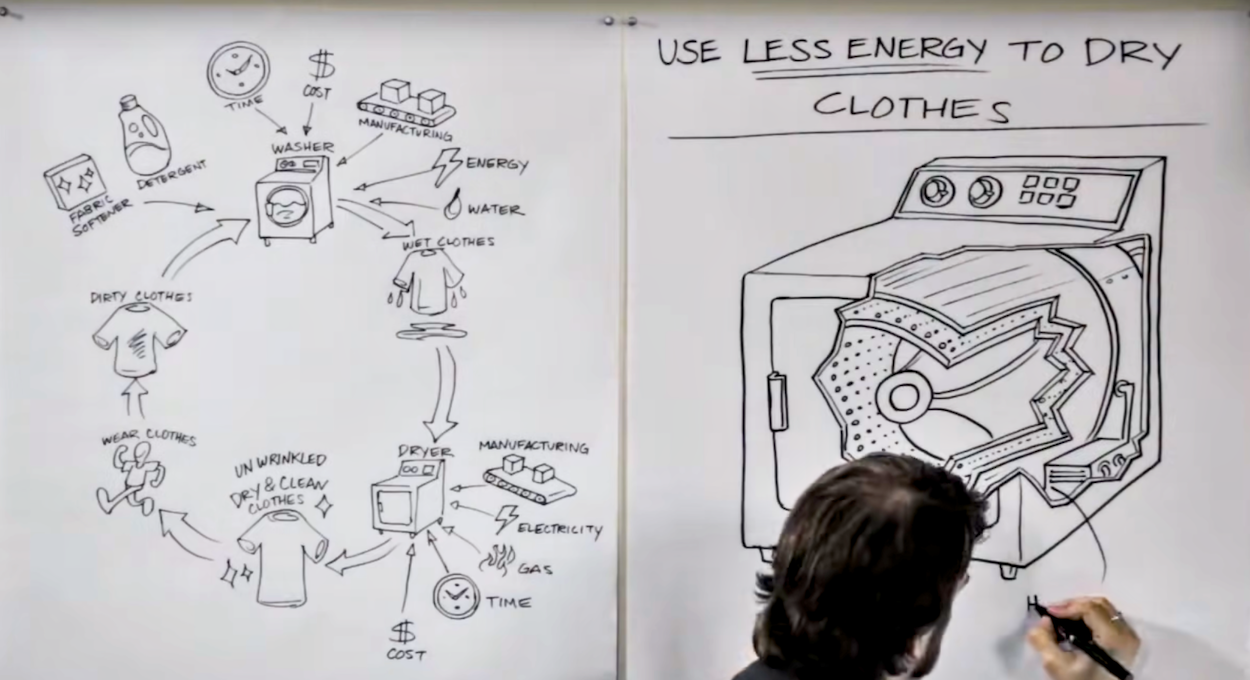 TIME
$
COST
MANUFACTURING
WASHER
ENERGY
DETERGENT
FABRIC
SOFTENER
WATER
WET CLOTHES
DIRTY CLOTHES
WEAR CLOTHES
UNWRINKLED
DRY & CLEAN
CLOTHES
DRYER
MANUFACTURING
ELECTRICITY
GAS
TIME
$
COST
USE LESS ENERGY TO DRY
CLOTHES
H